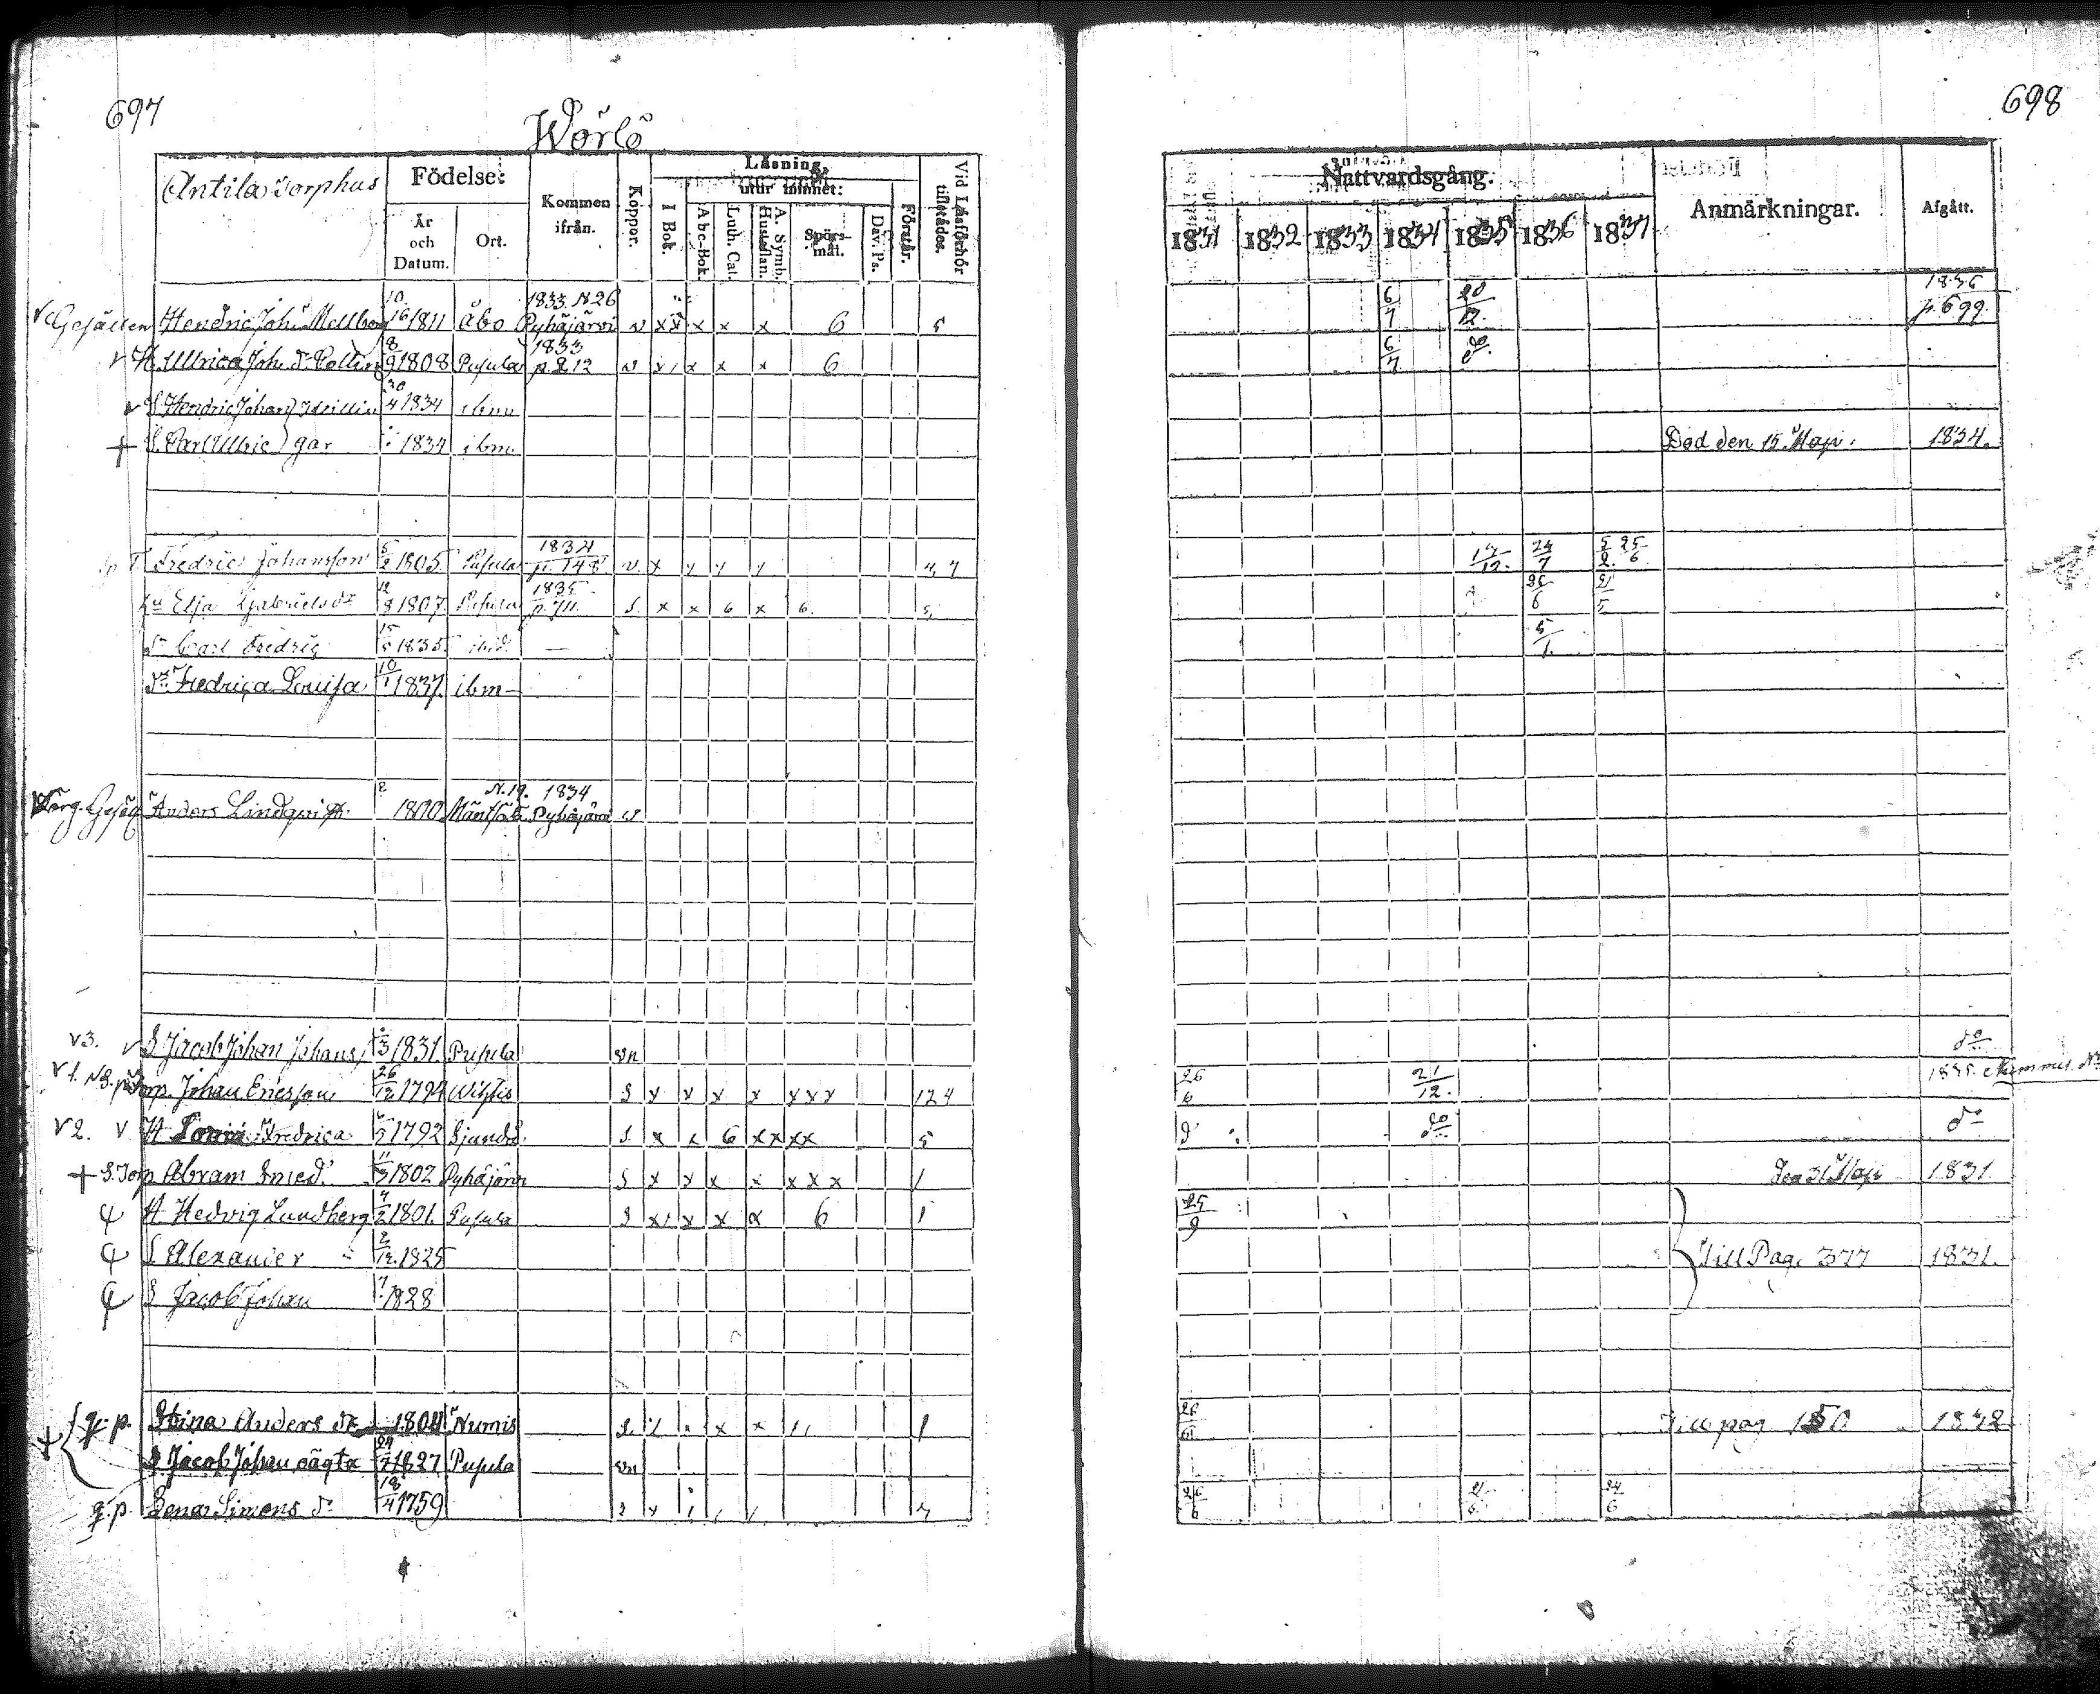 697
Wörlö
Antila Torphus
Födelse:
År och Datum.
Ort.
Kommen ifrån.
Koppor.
Läsning.
I Bok.
utur minnet:
Abc-Bok.
Luth. Cat.
A. Symb. Hustaflan.
Spörsmål.
Dav. Ps.
Förstår.
Vid Läsförhör tillstädes.
Gesällen Hendric Joh: Mellberg 10/16 1811 Åbo 1833 N 26 Pyhäjärvi v x x x x x 6 5
H. Ullrica Joh. dr 8/9 1808 Pusula 1833 p. 212 v x x x x 6
S. Hendric Johan Tvillin 30/4 1834 ibm
S. Carl Ulric gar 1834 ibm
T. Fredric Johansson 5/2 1805 Pusula 1834 p. 148 v. x y y y 4, 7
hu Elsa Gabriels dr 12/8 1807 Pusula 1835 p. 711. S. x x 6 x 6. 5,
Sn Carl Fredric 15/5 1835 ibid. —
Dr Fredrica Lovisa 10/1 1837 ibm —
Gesäll Anders Lindqvist 1800 Mäntsälä N. 19. 1834 Pyhäjärvi v
v3. v S Jacob Johan Johans 1831 Pusula vn
v1. Torp. Johan Ericsson 26/12 1794 Wihtis S x x x x x x x 124
v2. v H Lovisa Fredrica 1792 Sjundeå S. x x 6 x x x x 5
+ S. Torp Abram Smed 11/3 1802 Pyhäjärvi S x x x x x x x 1
H. Hedvig Lundberg 1801. Pusula S x x x x 6 1
S Alexander 2/12. 1825
S Jacob Johan 1828
q. p. Stina Anders dr 1804 Numis S. 1
S Jacob Johan oägta 24/7 1827 Pusula vn
q. p. Lena Simons dr 18/4 1759
698
Nattvardsgång.
1831 1832 1833 1834 1835 1836 1837
Anmärkningar.
Afgått.
6/7 20/12. 1836 p. 699.
6/7 do
Död den 15 Maji. 1834.
17/12. 24/7 5/2. 25/6
26/6 21/5
5/1.
do
26/6 21/12. 1835. Nummis
do do
den 31 Maji 1831.
25/9
Till Pag. 377 1831.
26/6 Till pag 150 1832
26/6 21/6 24/6